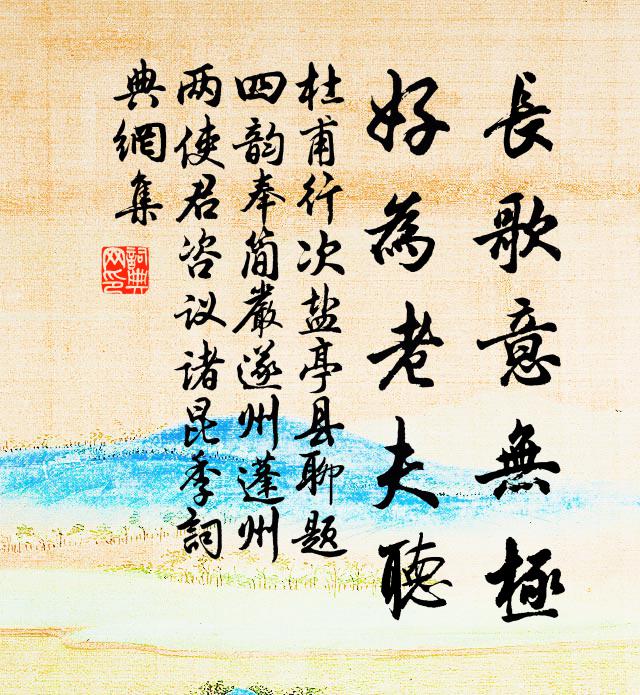 長歌意無極
好為老夫聽
杜甫行次盐亭县聊题
四韵奉简嚴遂州蓬州
两使君咨议诸昆季詞
典網集
詞典網印